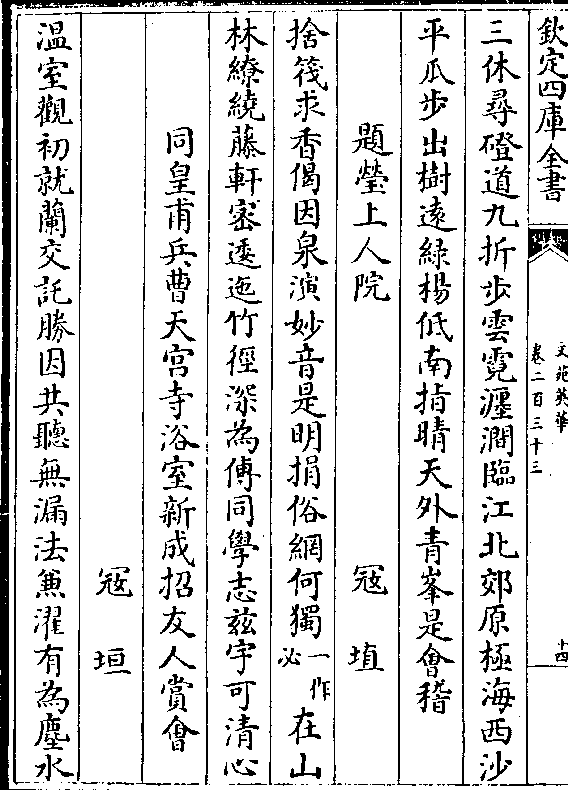 欽定四庫全書
文苑英華
卷二百三十三
十四
三休尋磴道九折步雲霓瀍澗臨江北郊原極海西沙
平瓜步出樹遠綠楊低南指晴天外青峯是會稽
題瑩上人院
冦埴
捨筏求香偈因泉演妙音是明捐俗網何獨一作必在山
林繚繞藤軒密逶迤竹徑深為傅同學志兹宇可清心
同皇甫兵曹天宫寺浴室新成招友人賞會
冦垣
温室觀初就蘭交託勝因共聽無漏法兼濯有為塵水